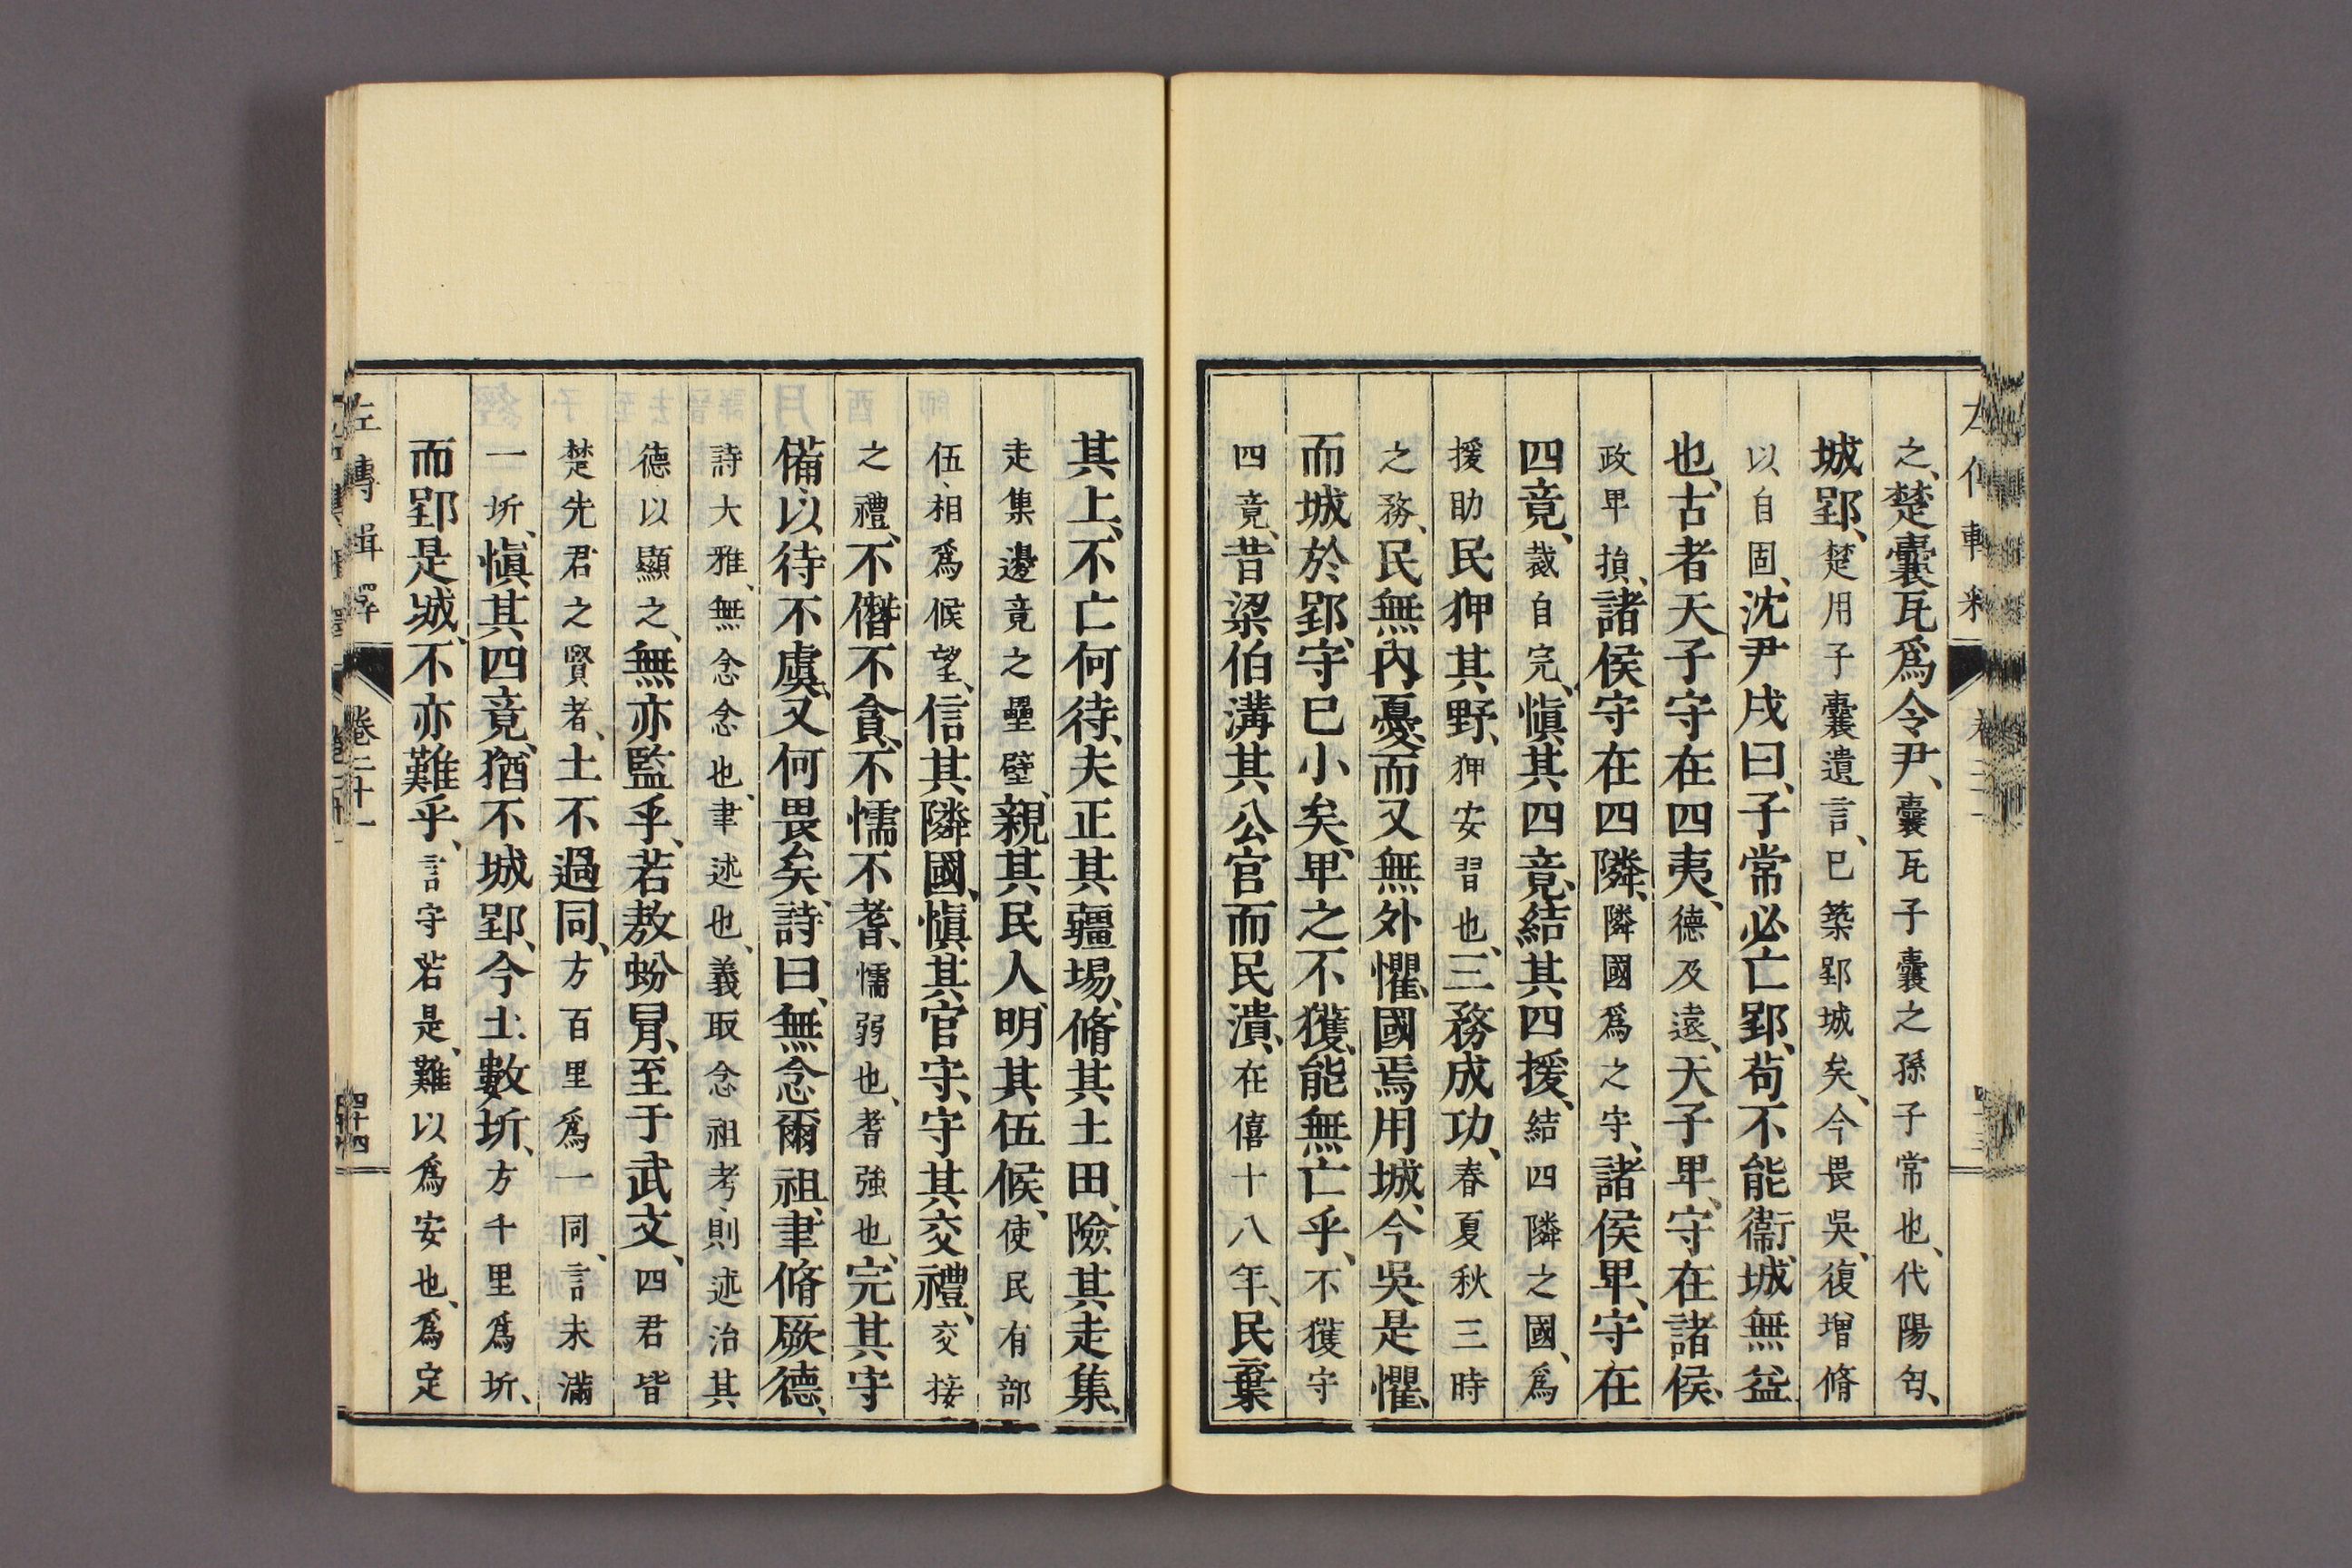 之、楚囊瓦爲令尹、囊瓦子囊之孫子常也、代陽匄、
城郢、楚用子囊遺言、已築郢城矣、今畏吳、復增脩
以自固、沈尹戌曰、子常必亡郢、苟不能衞、城無益
也、古者天子守在四夷、德及遠、天子卑、守在諸侯、
政卑損、諸侯守在四隣、隣國爲之守、諸侯卑、守在
四竟、裁自完、愼其四竟、結其四援、結四隣之國、爲
援助民狎其野、狎安習也、三務成功、春夏秋三時
之務、民無內憂、而又無外懼、國焉用城、今吳是懼、
而城於郢、守已小矣、卑之不獲、能無亡乎、不獲守
四竟、昔梁伯溝其公宮而民潰、在僖十八年、民棄
其上、不亡何待、夫正其疆埸、脩其土田、險其走集、
走集邊竟之壘壁、親其民人、明其伍候、使民有部
伍、相爲候望、信其隣國、愼其官守、守其交禮、交接
之禮、不僭不貪、不懦不耆、懦弱也、耆強也、完其守
備、以待不虞、又何畏矣、詩曰、無念爾祖、聿脩厥德、
詩大雅、無念念也、聿述也、義取念祖考、則述治其
德、以顯之、無亦監乎、若敖蚡冐、至于武文、四君皆
楚先君之賢者、土不過同、方百里爲一同、言未滿
一圻、愼其四竟、猶不城郢、今土數圻、方千里爲圻、
而郢是城、不亦難乎、言守若是、難以爲安也、爲定
左傳輯釋
卷二十一
四十四